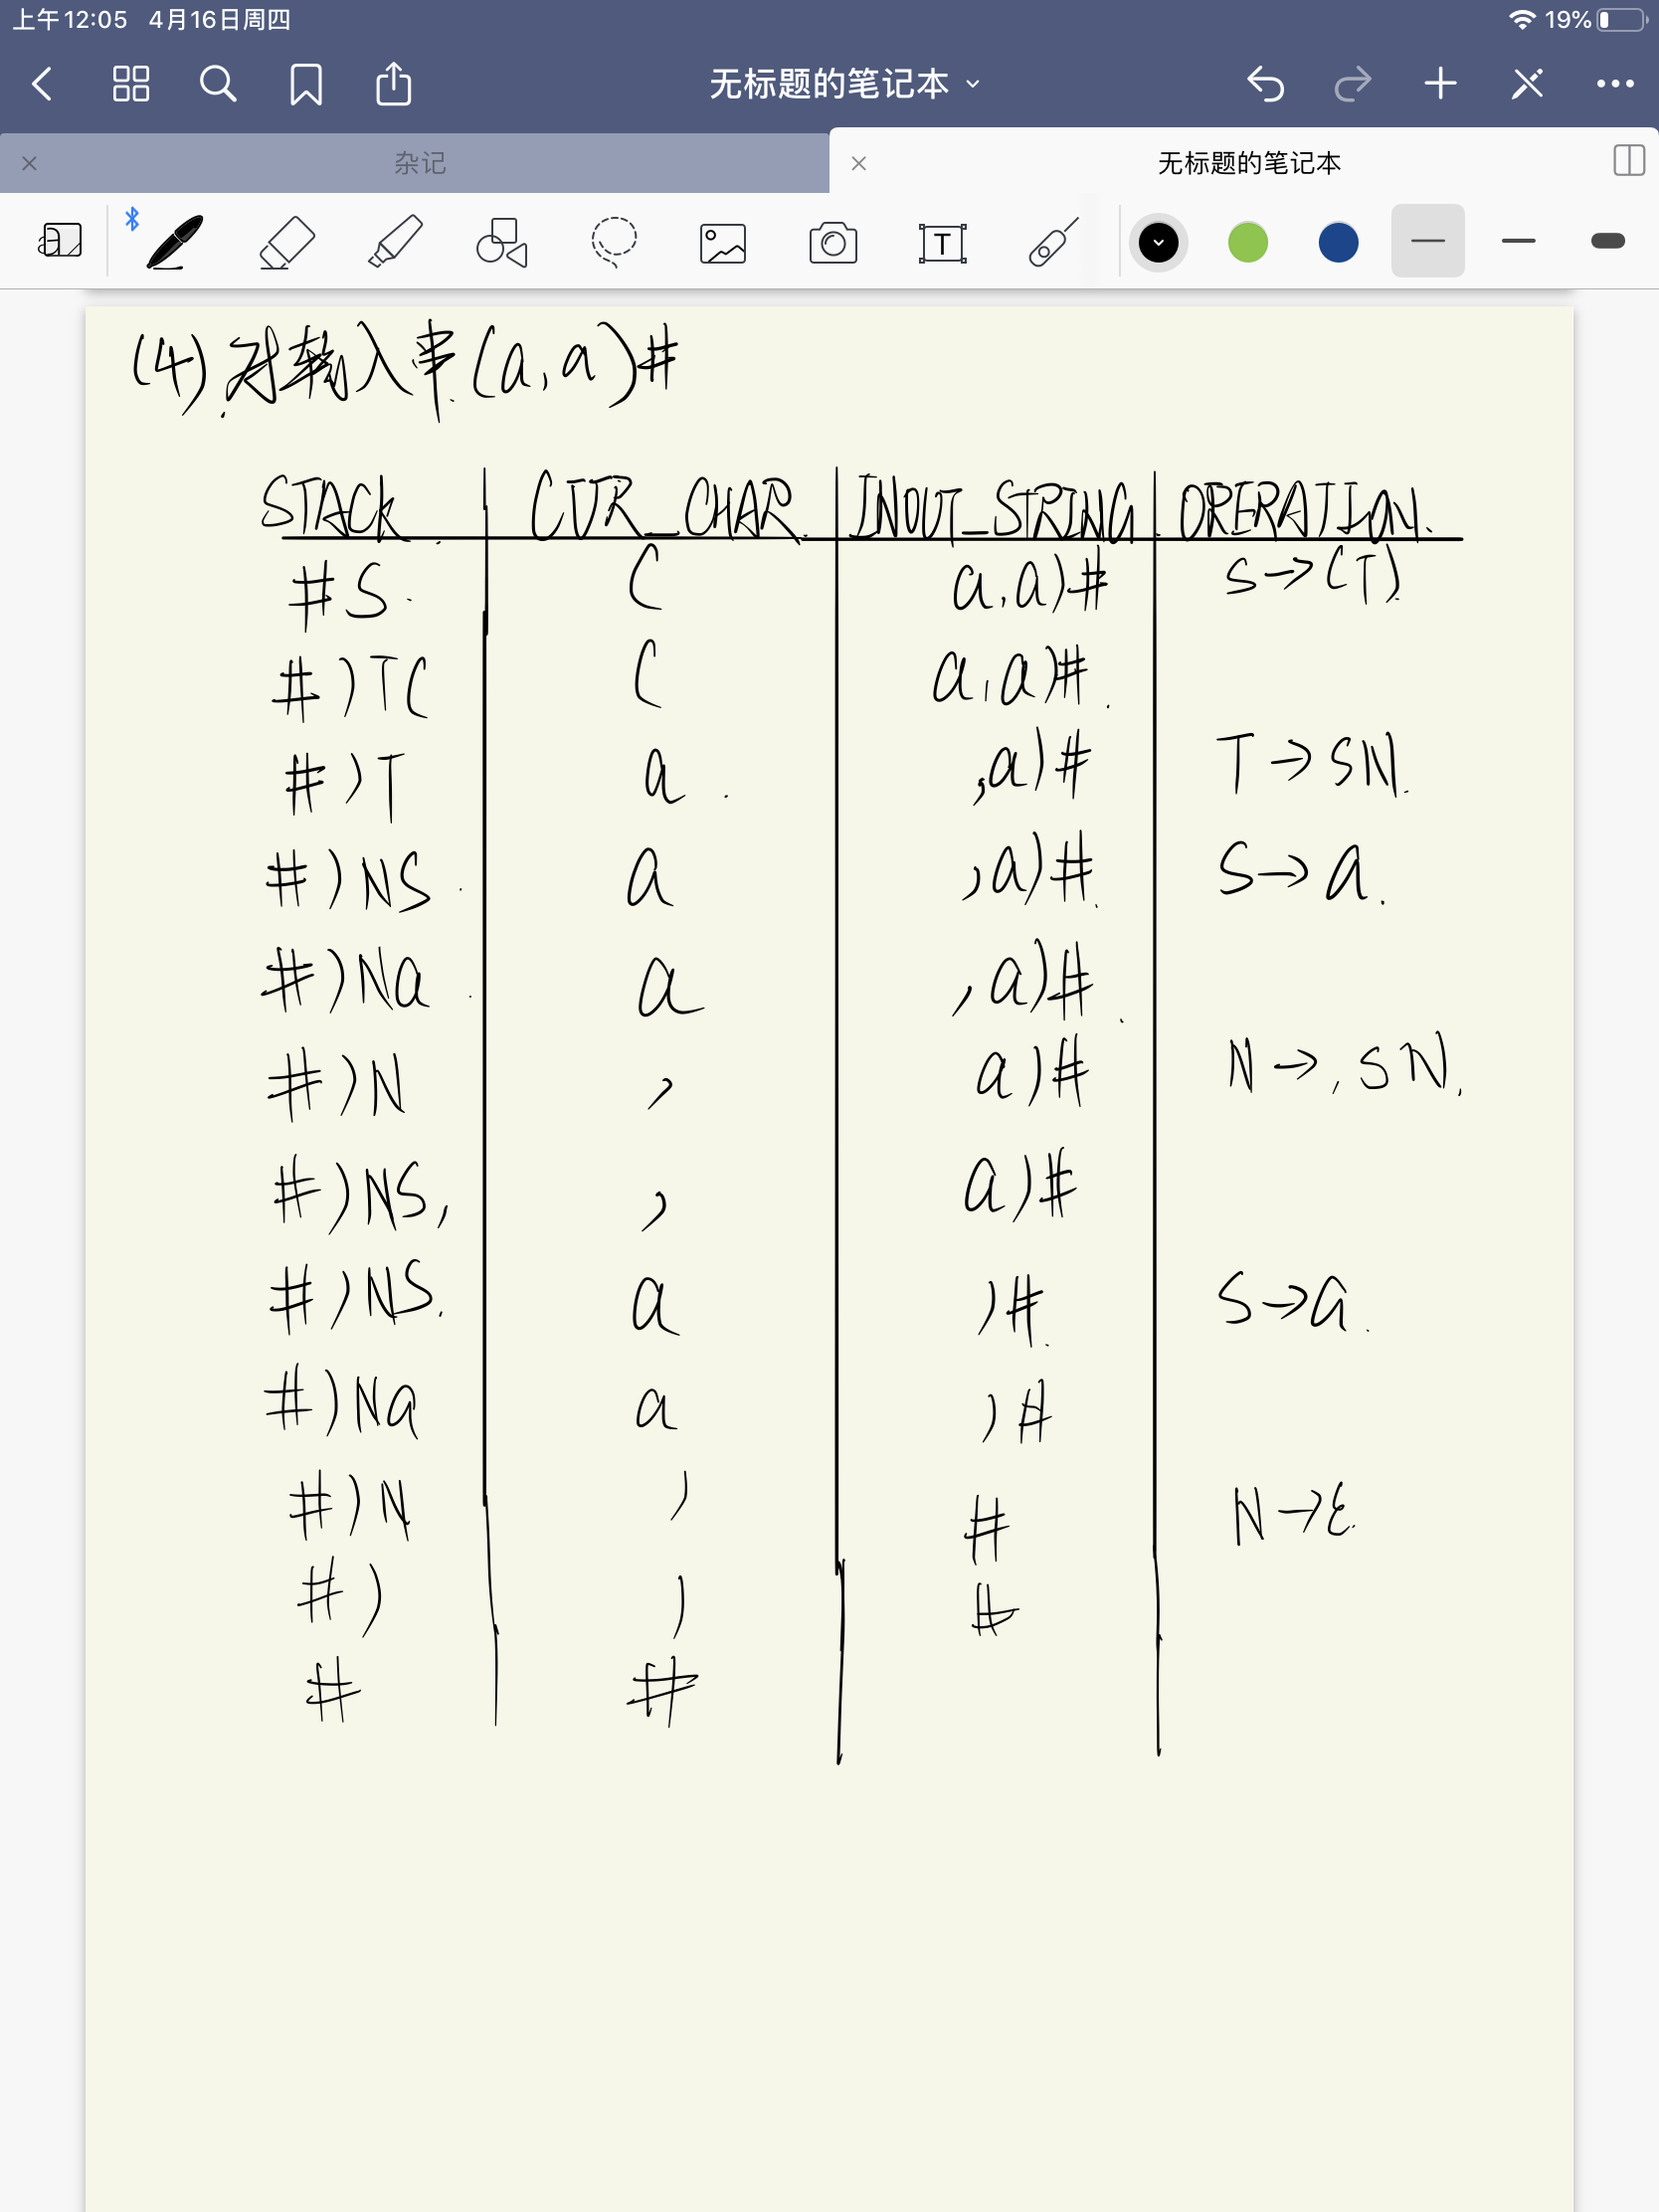 上午12:05 4月16日周四 19%
无标题的笔记本
杂记 无标题的笔记本
(4). 对输入串(a,a)#
STACK CUR_CHAR INPUT_STRING OPERATION.
#S ( a,a)# S→(T)
#)T( ( a,a)#
#)T a ,a)# T→SN
#)NS a ,a)# S→a
#)Na a ,a)#
#)N , a)# N→,SN
#)NS, , a)#
#)NS a )# S→a
#)Na a )#
#)N ) # N→ε
#) ) #
# #